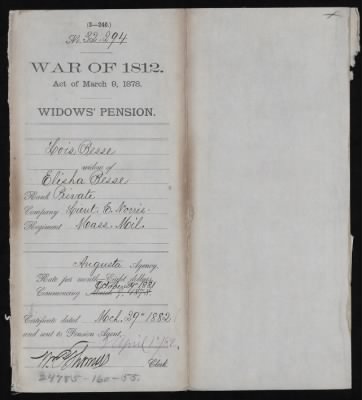 (3—246.)
No. 32,294
WAR OF 1812.
Act of March 9, 1878.
WIDOWS' PENSION.
Lois Besse
widow of
Elisha Besse
Rank Private
Company Lieut. E. Norris
Regiment Mass. Mil.
Augusta Agency.
Rate per month Eight dollars
October 24 1881
Commencing March 9, 1878
Certificate dated Mch. 29" 1882
and sent to Pension Agent,
April 1"
Thomas Clerk.
24785-160-55.